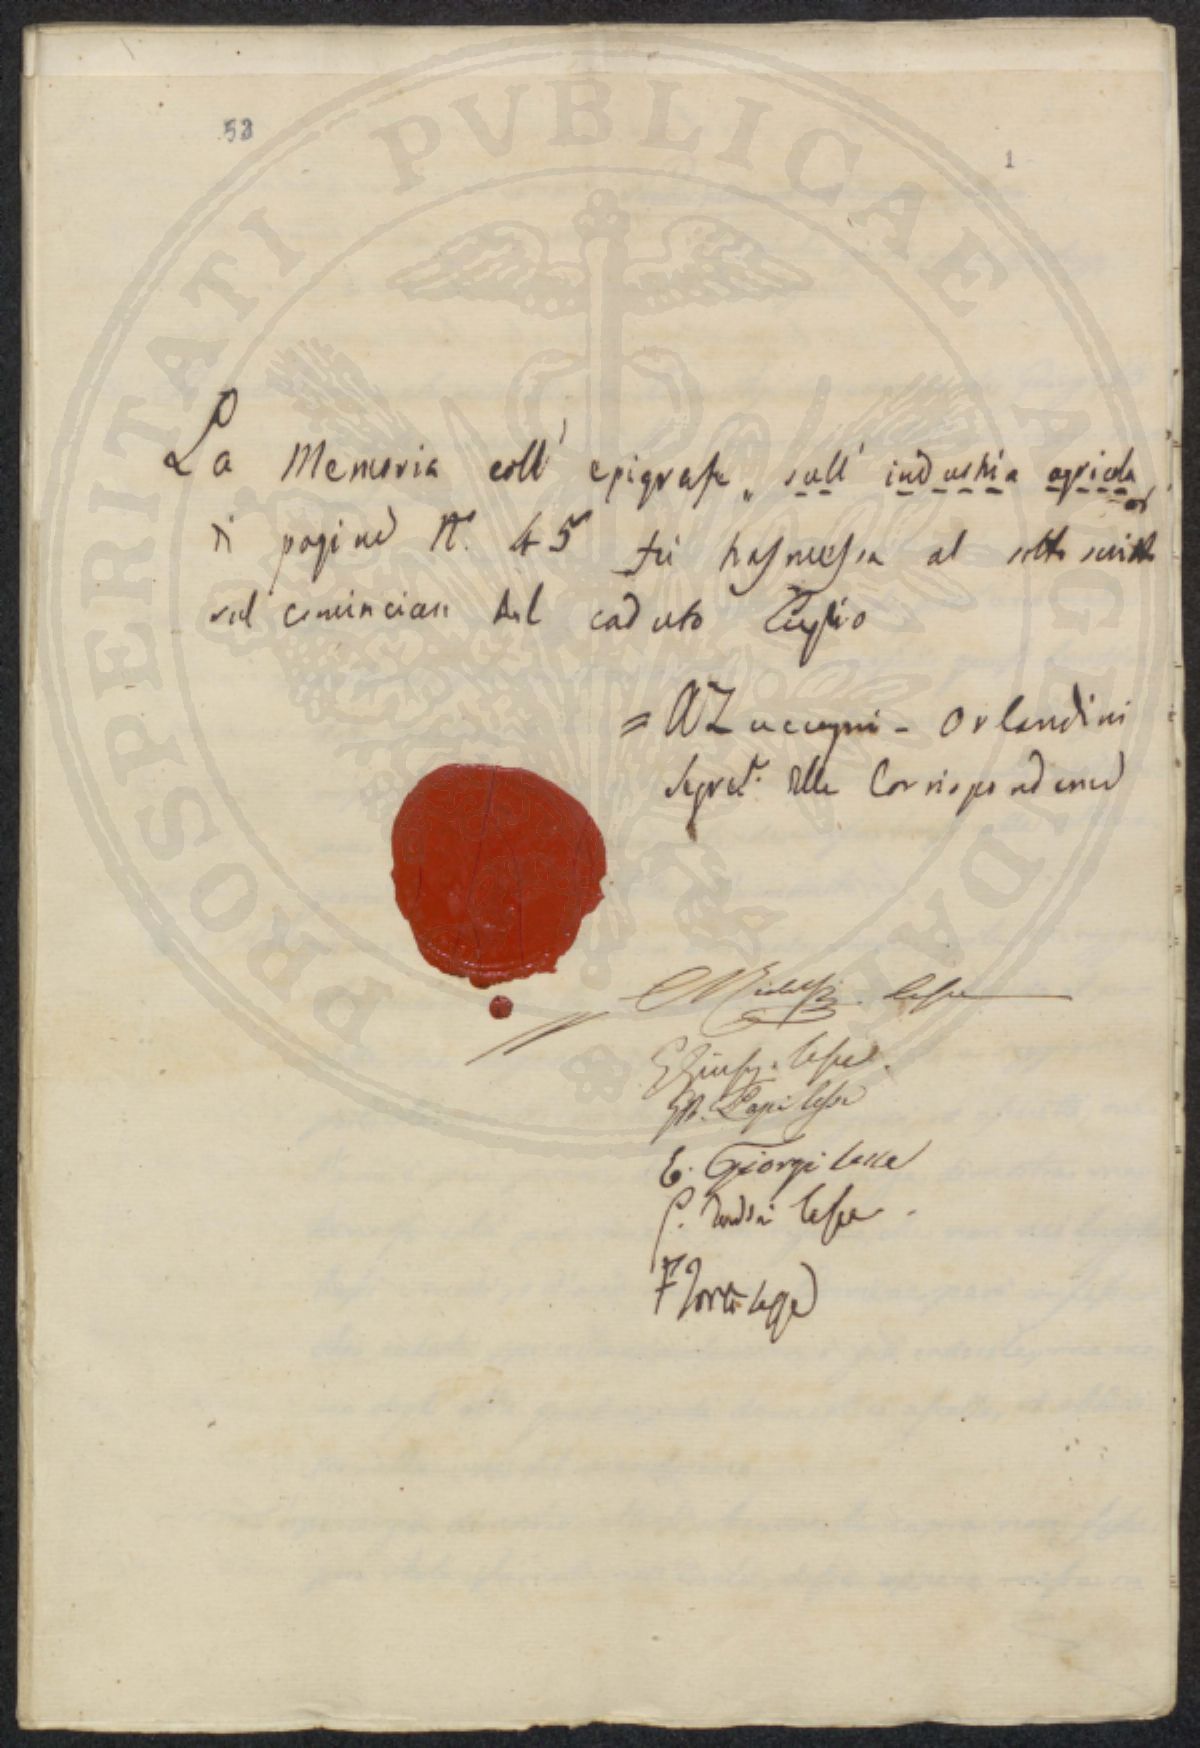 PROSPERITATI PVBLICAE AVGENDAE
53
1
La Memoria coll' epigrafe „ sull' industria agricola „
di pagine N. 45 fù trasmessa al sottoscritto
sul cominciare del caduto Luglio
= A Zuccagni - Orlandini
Segret. della Corrispondenza
C Ridolfi lesse
lesse
Lapi lesse
E. Giorgi lesse
lesse
F lesse